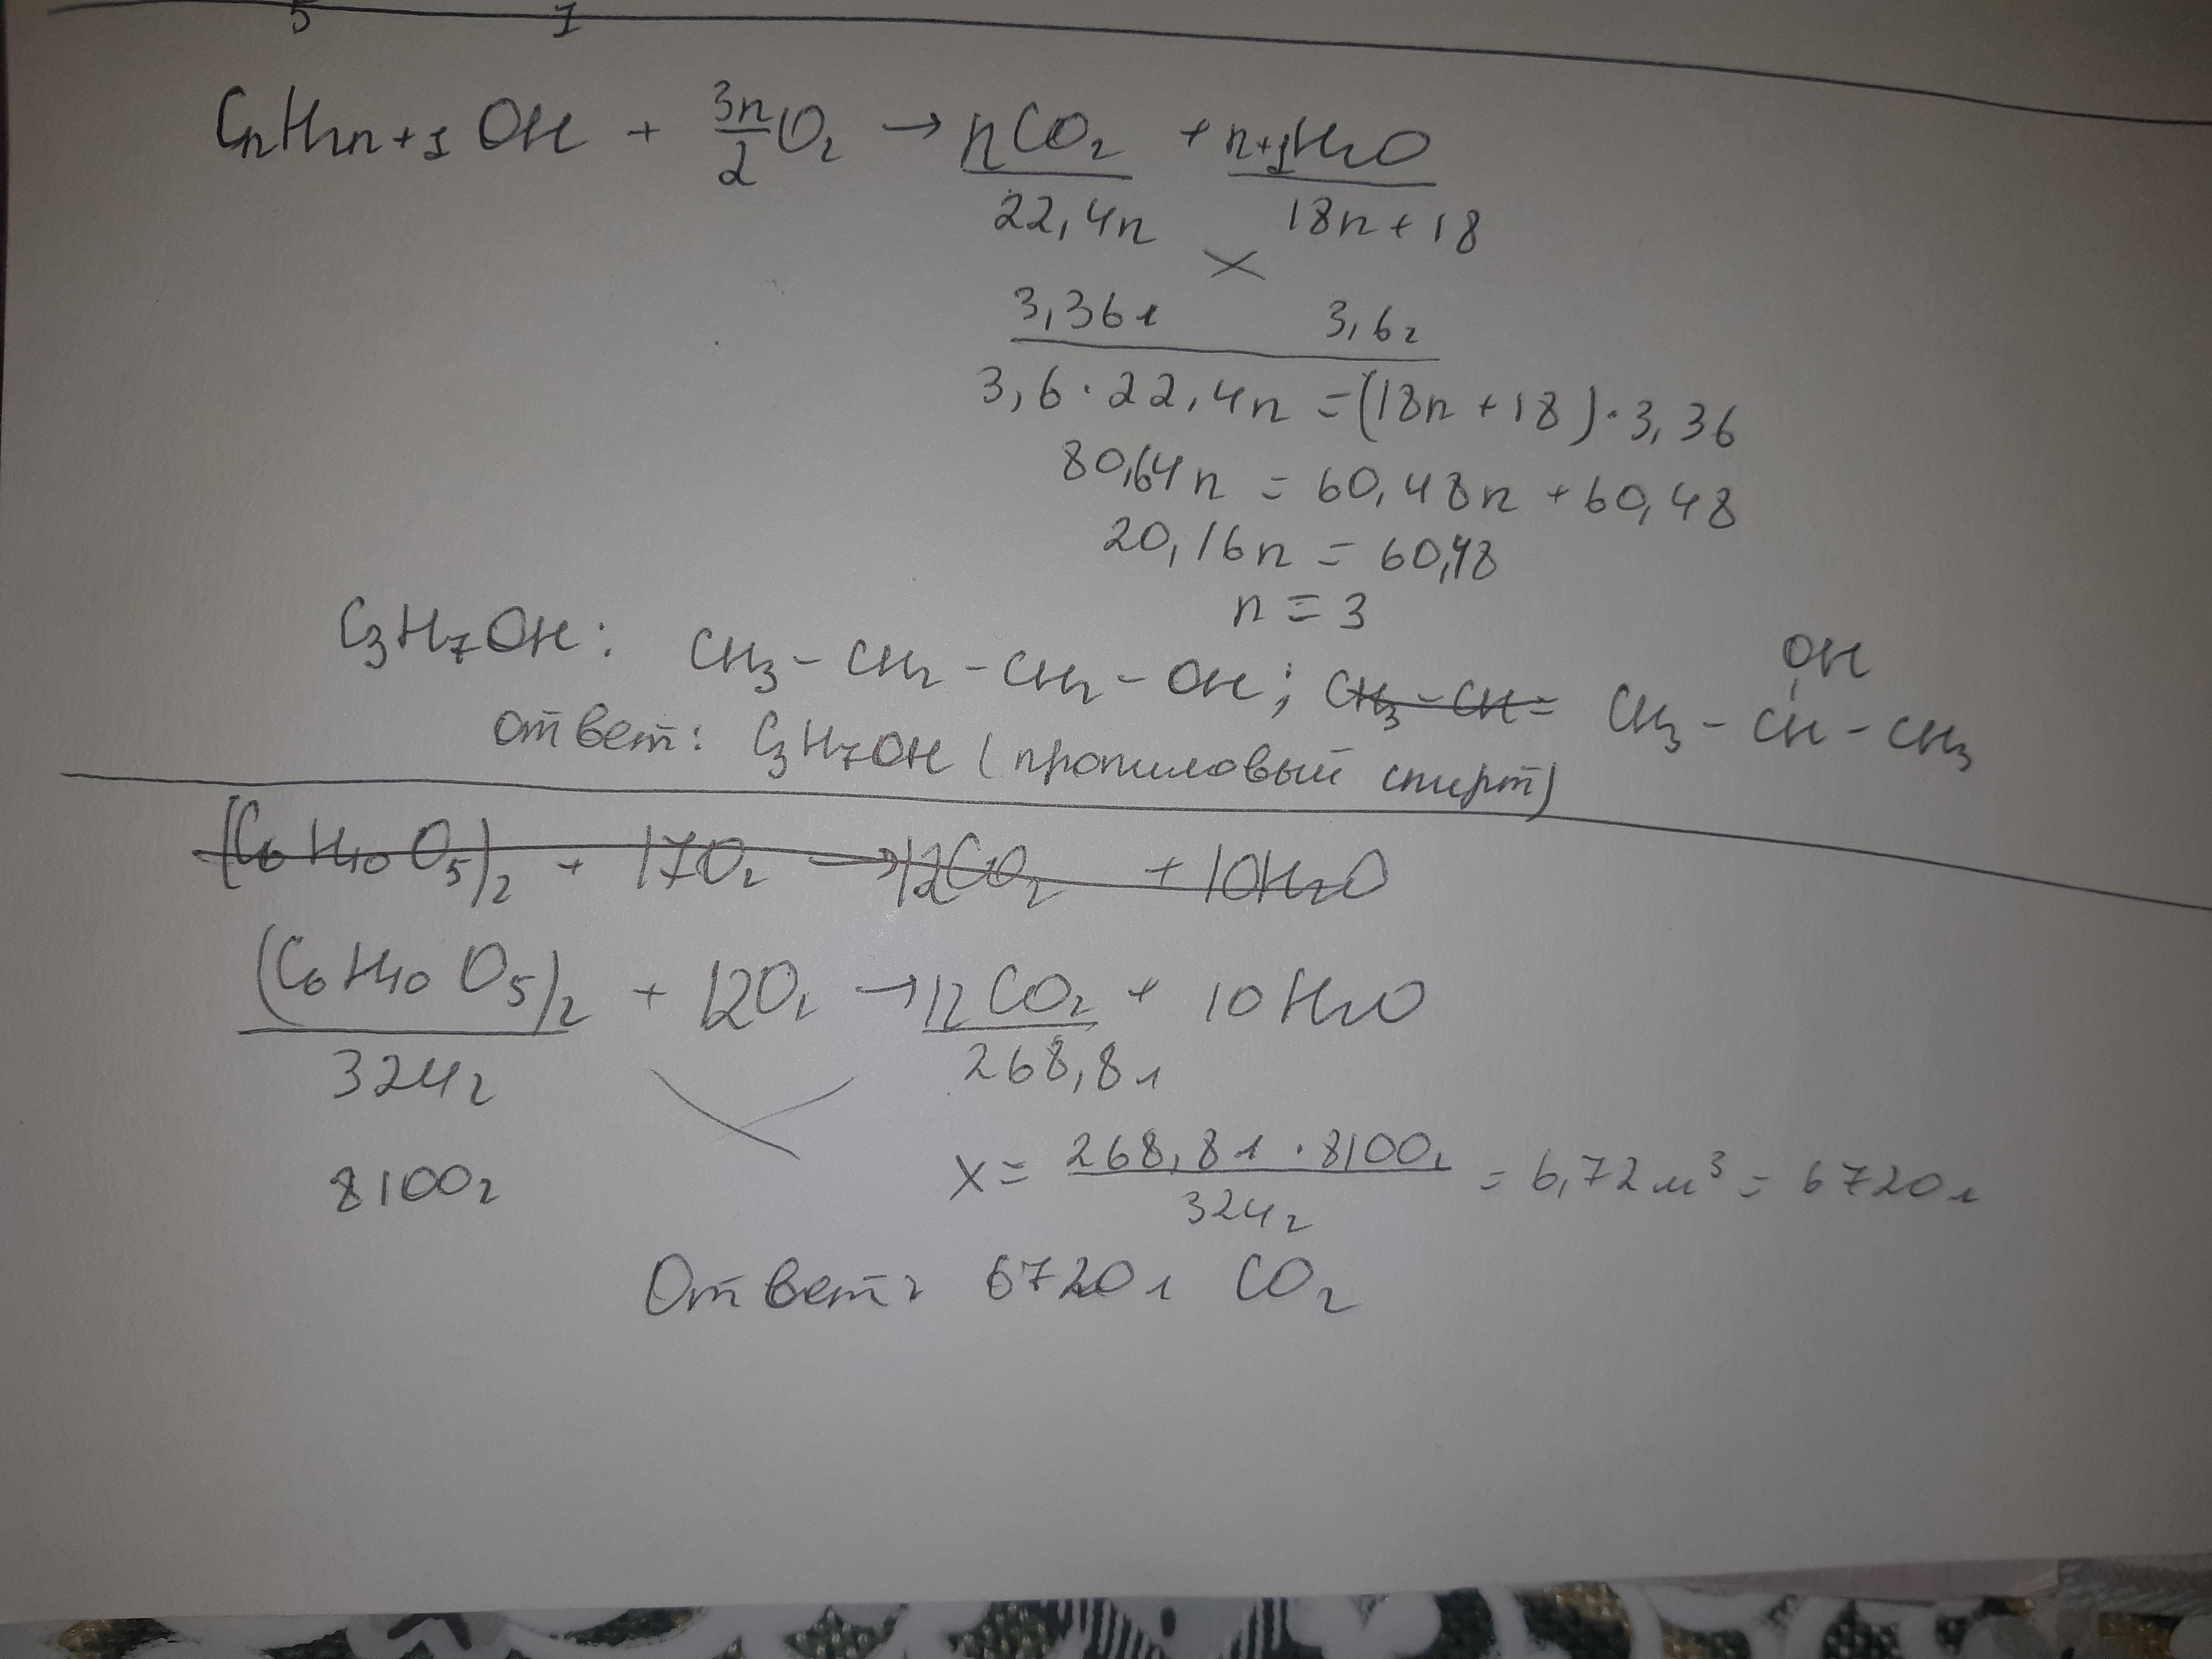 5 1
CnH2n+1 OH + 3n/2 O2 → nCO2 + n+1H2O
22,4n 18n+18
3,36л 3,6г
3,6·22,4n = (18n+18)·3,36
80,64n = 60,48n + 60,48
20,16n = 60,48
n = 3
OH
C3H7OH: CH3 - CH2 - CH2 - OH; CH3 - CH= CH3 - CH - CH3
ответ: C3H7OH (пропиловый спирт)
(C6H10O5)2 + 17O2 → 12CO2 + 10H2O
(C6H10O5)2 + 12O2 → 12CO2 + 10H2O
324г 268,8л
8100г x = 268,8л · 8100г / 324г = 6,72м³ = 6720л
Ответ: 6720л CO2